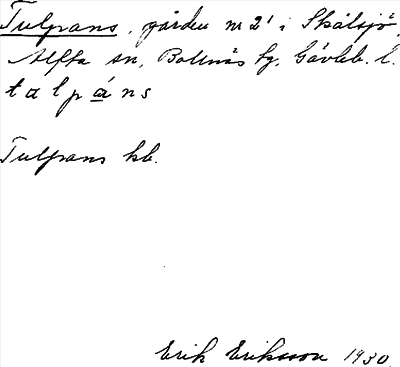 Tulpans, gården nr 2¹ i Skålsjö,
Alfta sn, Bollnäs tg, Gävleb. l.
talpáns
Tulpans hb.
Erik Eriksson 1930.